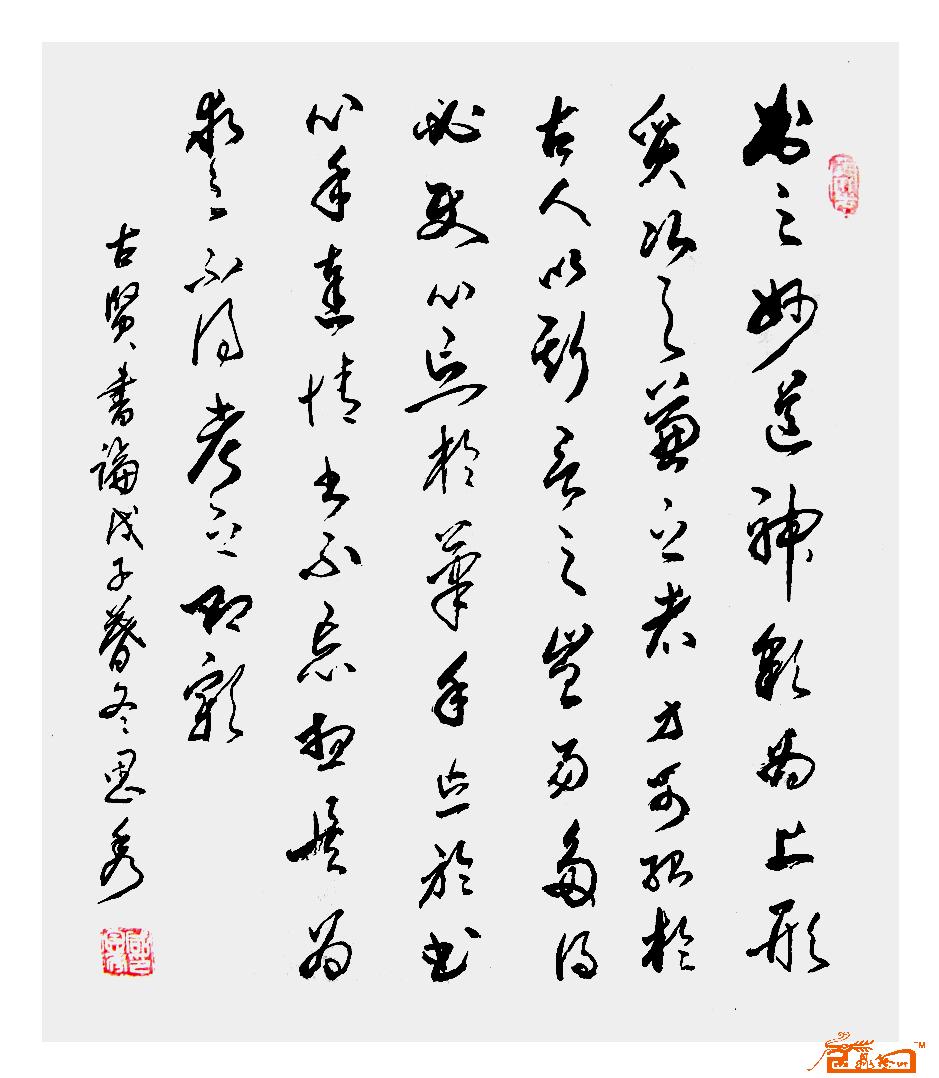 書之妙道神彩為上形
質次之兼之者方可紹於
古人以斯言之豈易多得
必使心忘於筆手忘於書
心手達情書不忘想是為
求之不得考之即彰
古賢書論戊子暮冬思秀